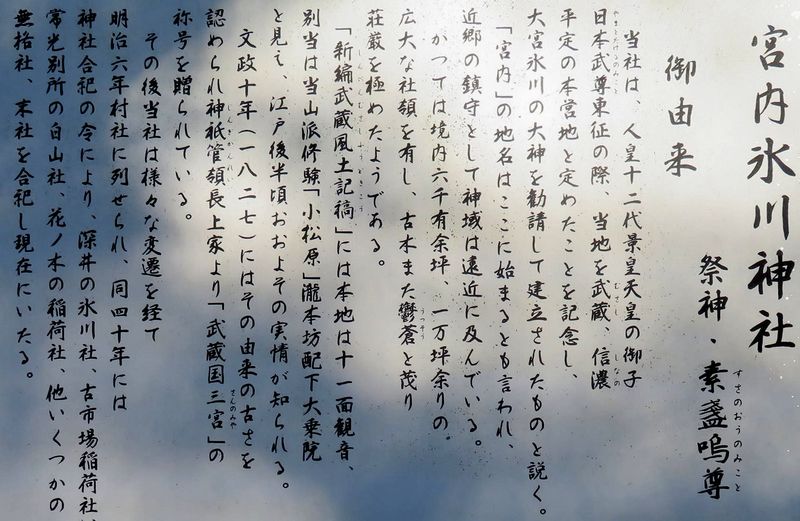 宮内氷川神社
祭神・素盞嗚尊
すさのおうのみこと
御由来
当社は、人皇十二代景皇天皇の御子
日本武尊東征の際、当地を武蔵、信濃
やまとたけるのみこと
むさし
しなの
平定の本営地と定めたことを記念し、
大宮氷川の大神を勧請して建立されたものと説く。
「宮内」の地名はここに始まるとも言われ、
近郷の鎮守として神域は遠近に及んでいる。
かつては境内六千有余坪、一万坪余りの。
広大な社領を有し、古木また鬱蒼と茂り
うっそう
荘厳を極めたようである。
「新編武蔵風土記稿」には本地は十一面観音、
しんぺんむさしふどきこう
別当は当山派修験「小松原」瀧本坊配下大乗院
と見え、江戸後半頃おおよその実情が知られる。
文政十年(一八二七)にはその由来の古さを
認められ神祇管領長上家より「武蔵国三宮」の
しんぎかんれい
さんのみや
称号を贈られている。
その後当社は様々な変遷を経て
明治六年村社に列せられ、同四十年には
神社合祀の令により、深井の氷川社、古市場稲荷社
常光別所の白山社、花ノ木の稲荷社、他いくつかの
無格社、末社を合祀し現在にいたる。